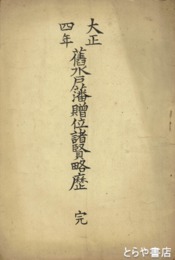 大正四年
舊水戸藩贈位諸賢略歴 完
とらや書店